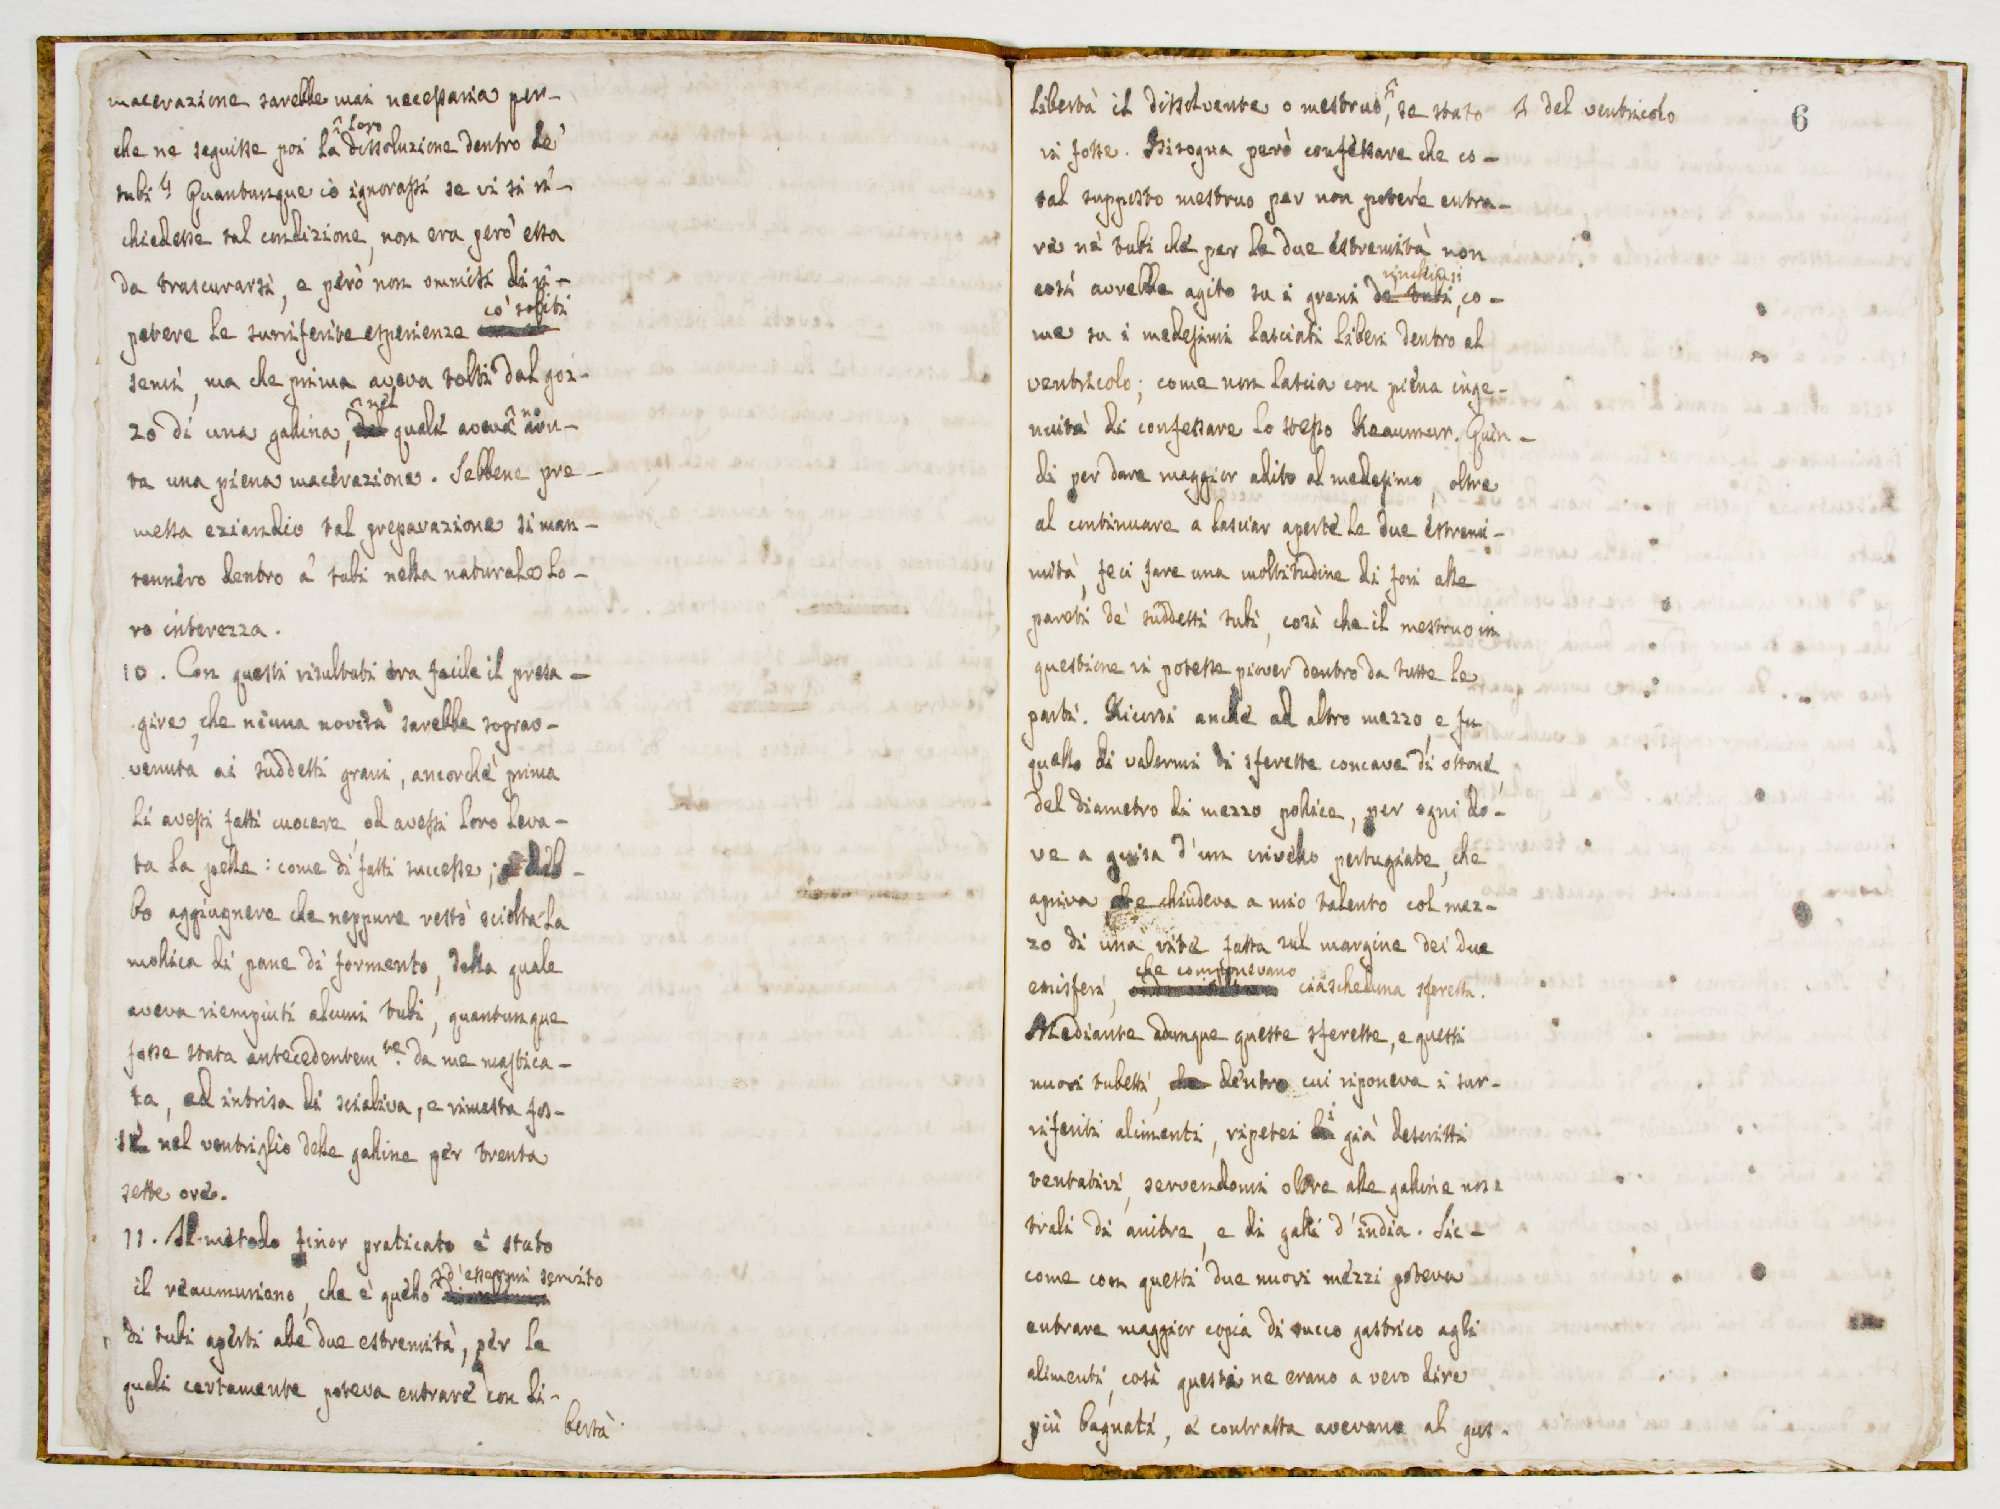 macerazione sarebbe mai necessaria per-
che ne seguisse poi la loro dissoluzione dentro de'
tubi? Quantunque io ignorassi se vi si ri-
chiedesse tal condizione, non era però essa
da trascurarsi, e però non ommisi di ri-
petere le surriferite esperienze co' soliti
semi, ma che prima aveva tolti dal goz-
zo di una gallina, nel quale avevano avu-
ta una piena macerazione. Sebbene pre-
messa eziandio tal preparazione si man-
tennero dentro a' tubi nella naturale lo-
ro interezza.
10. Con questi risultati era facile il presa-
gire, che niuna novità sarebbe soprav-
venuta ai suddetti grani, ancorchè prima
li avessi fatti cuocere, od avessi loro leva-
ta la pelle: come di fatti successe; e deb-
bo aggiugnere che neppure restò sciolta la
mollica di pane di formento, della quale
aveva riempiuti alcuni tubi, quantunque
fosse stata antecedentem.te da me mastica-
ta, ed intrisa di scialiva, e rimasta fos-
se nel ventriglio delle galline per trenta
sette ore.
11. Il metodo finor praticato è stato
il réaumuriano, che è quello d'essermi servito
di tubi aperti alle due estremità, per le
quali certamente poteva entrare con li-
bertà
6
libertà il dissolvente o mestruo, se stato del ventricolo
vi fosse. Bisogna però confessare che co-
tal supposto mestruo per non potere entra-
re ne' tubi che per le due estremità non
così avrebbe agito su i grani de tubi rinchiusi, co-
me su i medesimi lasciati liberi dentro al
ventricolo; come non lascia con piena inge-
nuità di confessare lo stesso Reaumur. Quin-
di per dare maggior adito al medesimo, oltre
al continuare a lasciar aperte le due estremi-
mità, feci fare una moltitudine di fori alle
pareti de' suddetti tubi, così che il mestruo in
questione vi potesse piover dentro da tutte le
parti. Ricorsi anche ad altro mezzo, e fu
quello di valermi di sferette concave di ottone,
del diametro di mezzo pollice, per ogni do-
ve a guisa d'un crivello pertugiate, che
apriva, e chiudeva a mio talento col mez-
zo di una vite fatta sul margine dei due
emisferi, che componevano ciascheduna sferetta.
Mediante adunque queste sferette, e questi
nuovi tubetti, dentro cui riponeva i sur-
riferiti alimenti, ripetei i già descritti
tentativi, servendomi oltre alle galline nos-
trali di anitre, e di galli d'india. Sic-
come con questi due nuovi mezzi poteva
entrare maggior copia di succo gastrico agli
alimenti, così questi ne erano a vero dire
più bagnati, e contratta avevano al gus-